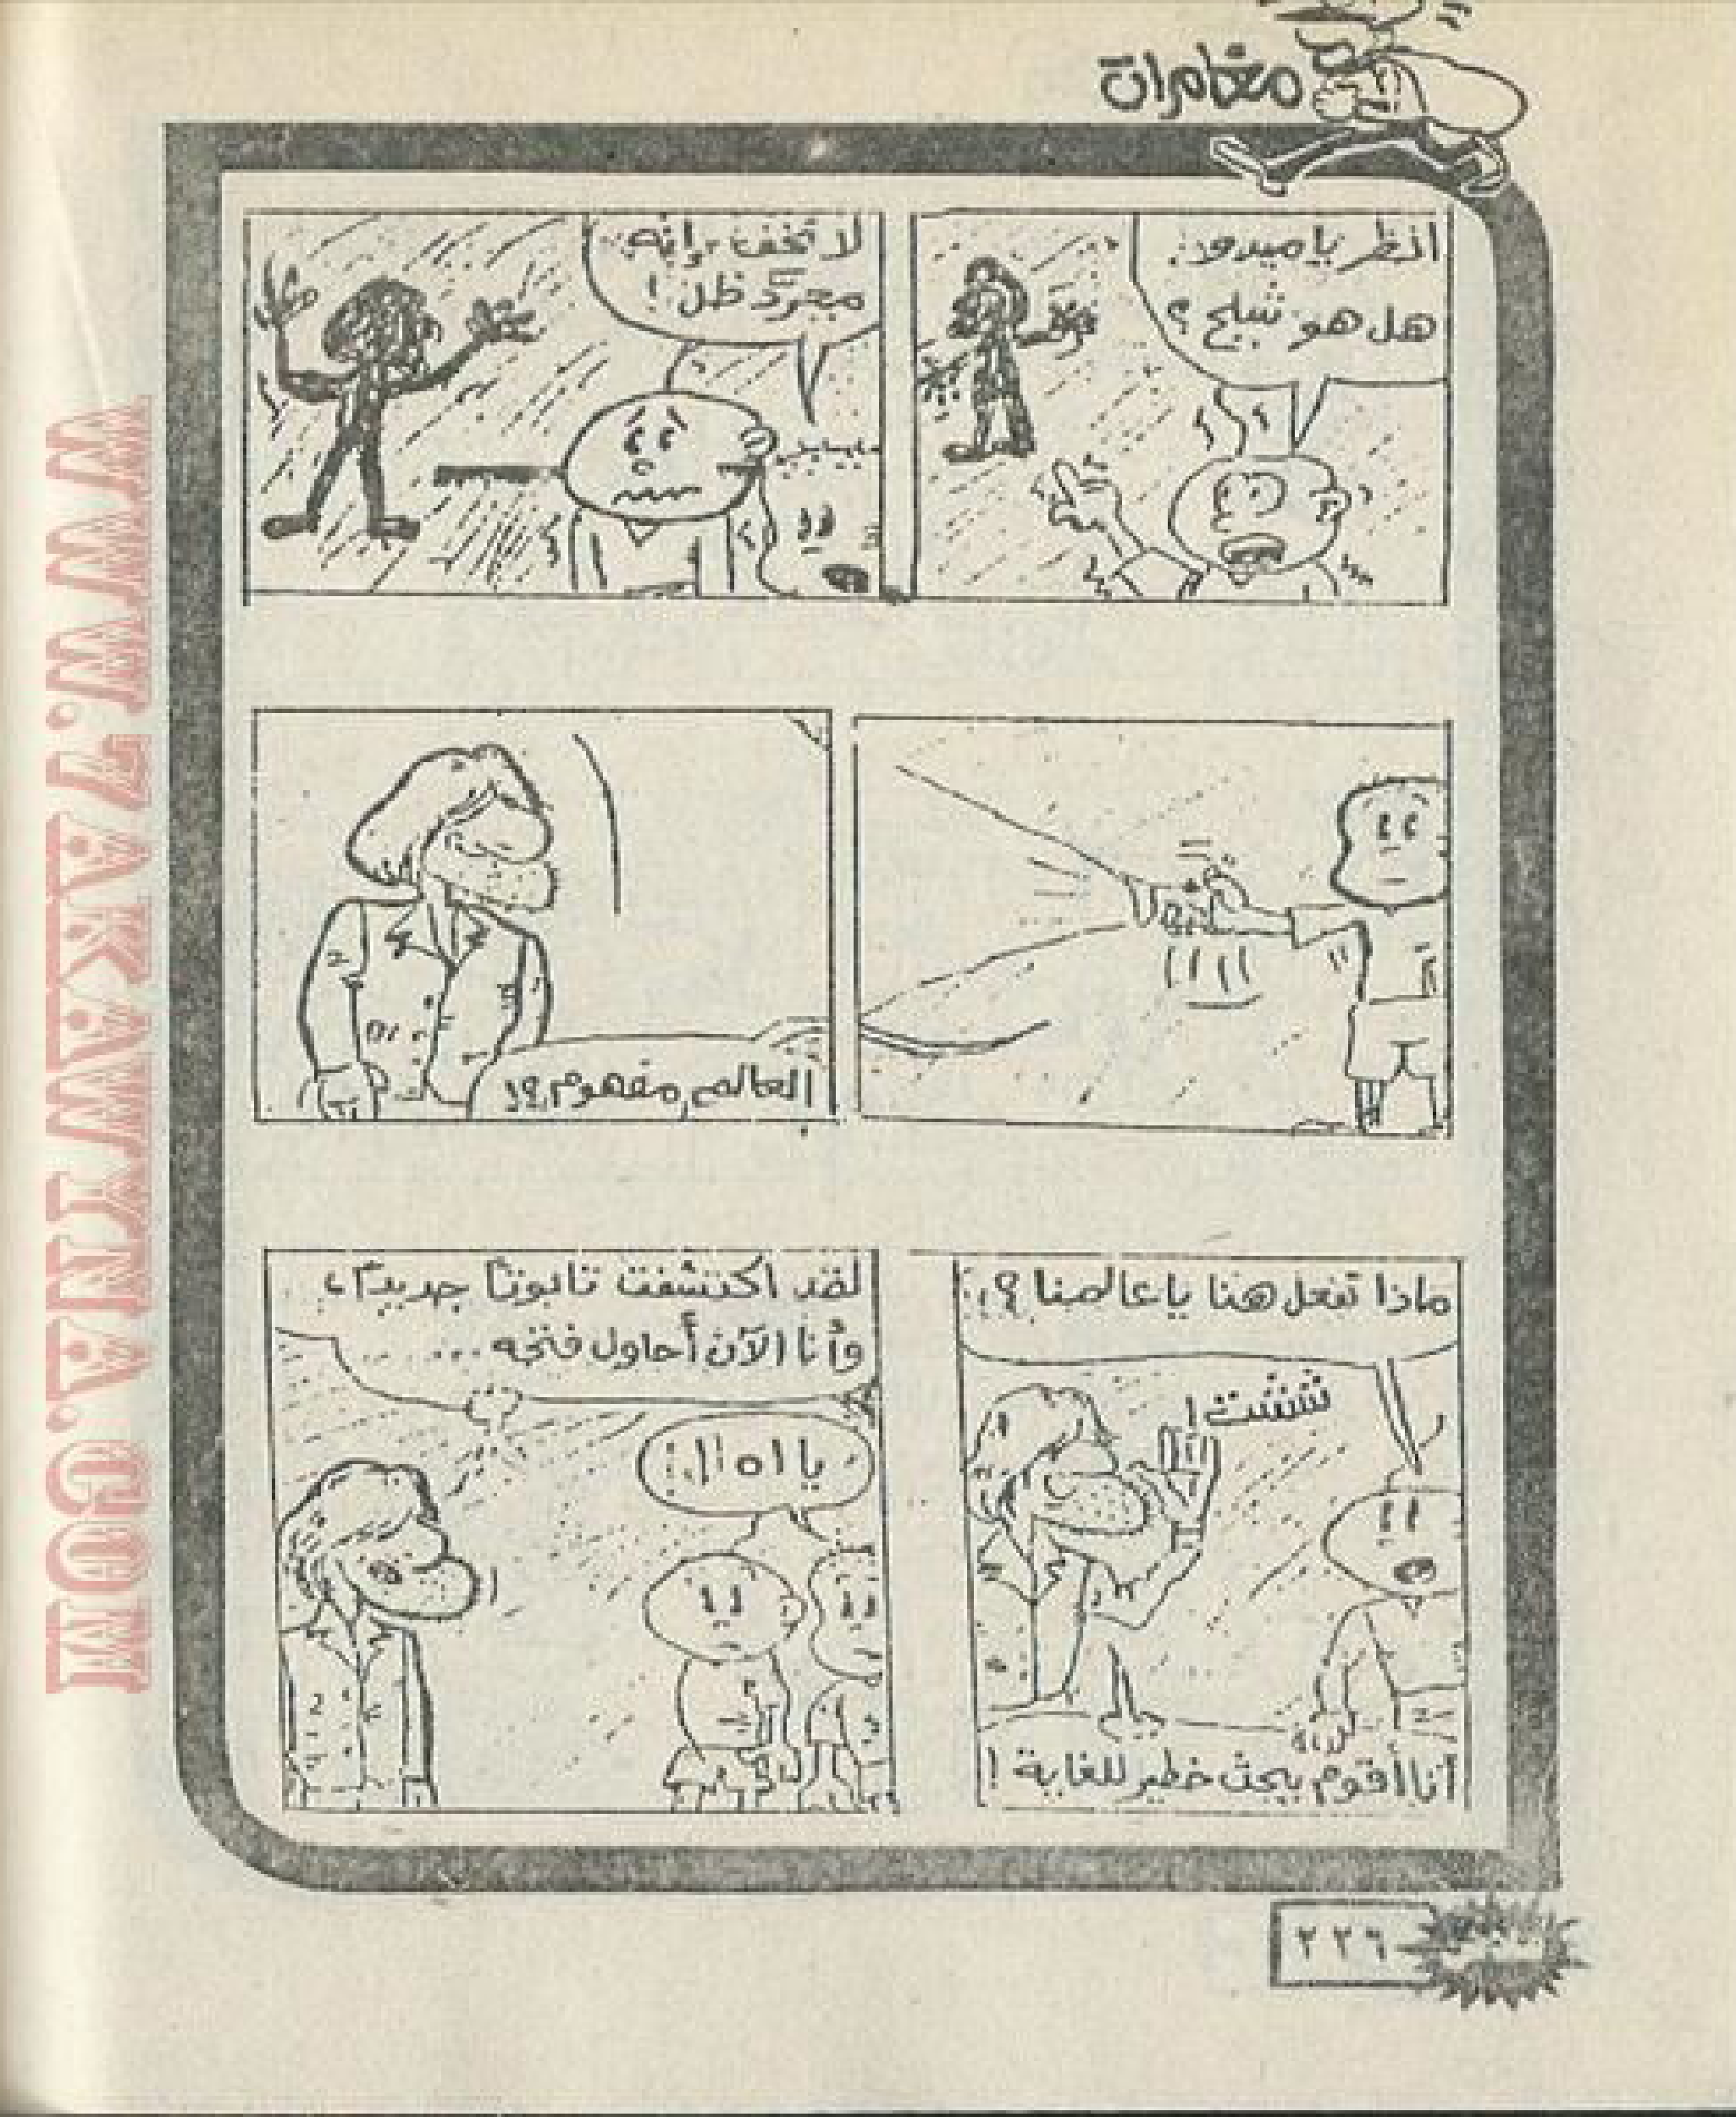 مغامرات
انظر يا ميدو!
هل هو شبح ؟
لا تخف، إنه
مجرد ظل !
العالم، مفهوم؟!
ماذا تفعل هنا يا عالمنا ؟!
شششت !
أنا أقوم ببحث خطير للغاية !
لقد اكتشفت تابوتاً جديداً،
وأنا الآن أحاول فتحه ...
يا اه اا!!
٢٢٦
WWW.7AKAWTNA.COM